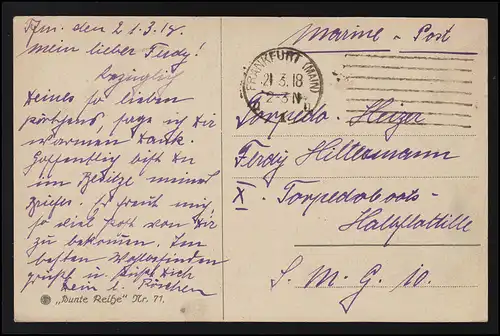 Ffm. den 21.3.18.
mein lieber Ferdy!
bezüglich
Deines so lieben
Kärtchens, sage ich Dir
warmen Dank.
Hoffentlich bist Du
im Besitze meines
Briefes. Es freut mich
so viel Post von Dir
zu bekommen. Im
besten Wohlbefinden
grüßt u. küßt Dich
Dein l. Röschen
„Bunte Reihe" Nr. 71.
Marine - Post
FRANKFURT (MAIN)
21.3.18
2-3 N
Torpedo-Heizer
Ferdy Hiltermann
X. Torpedoboots-
Halbflottille
S. M. G. 10.